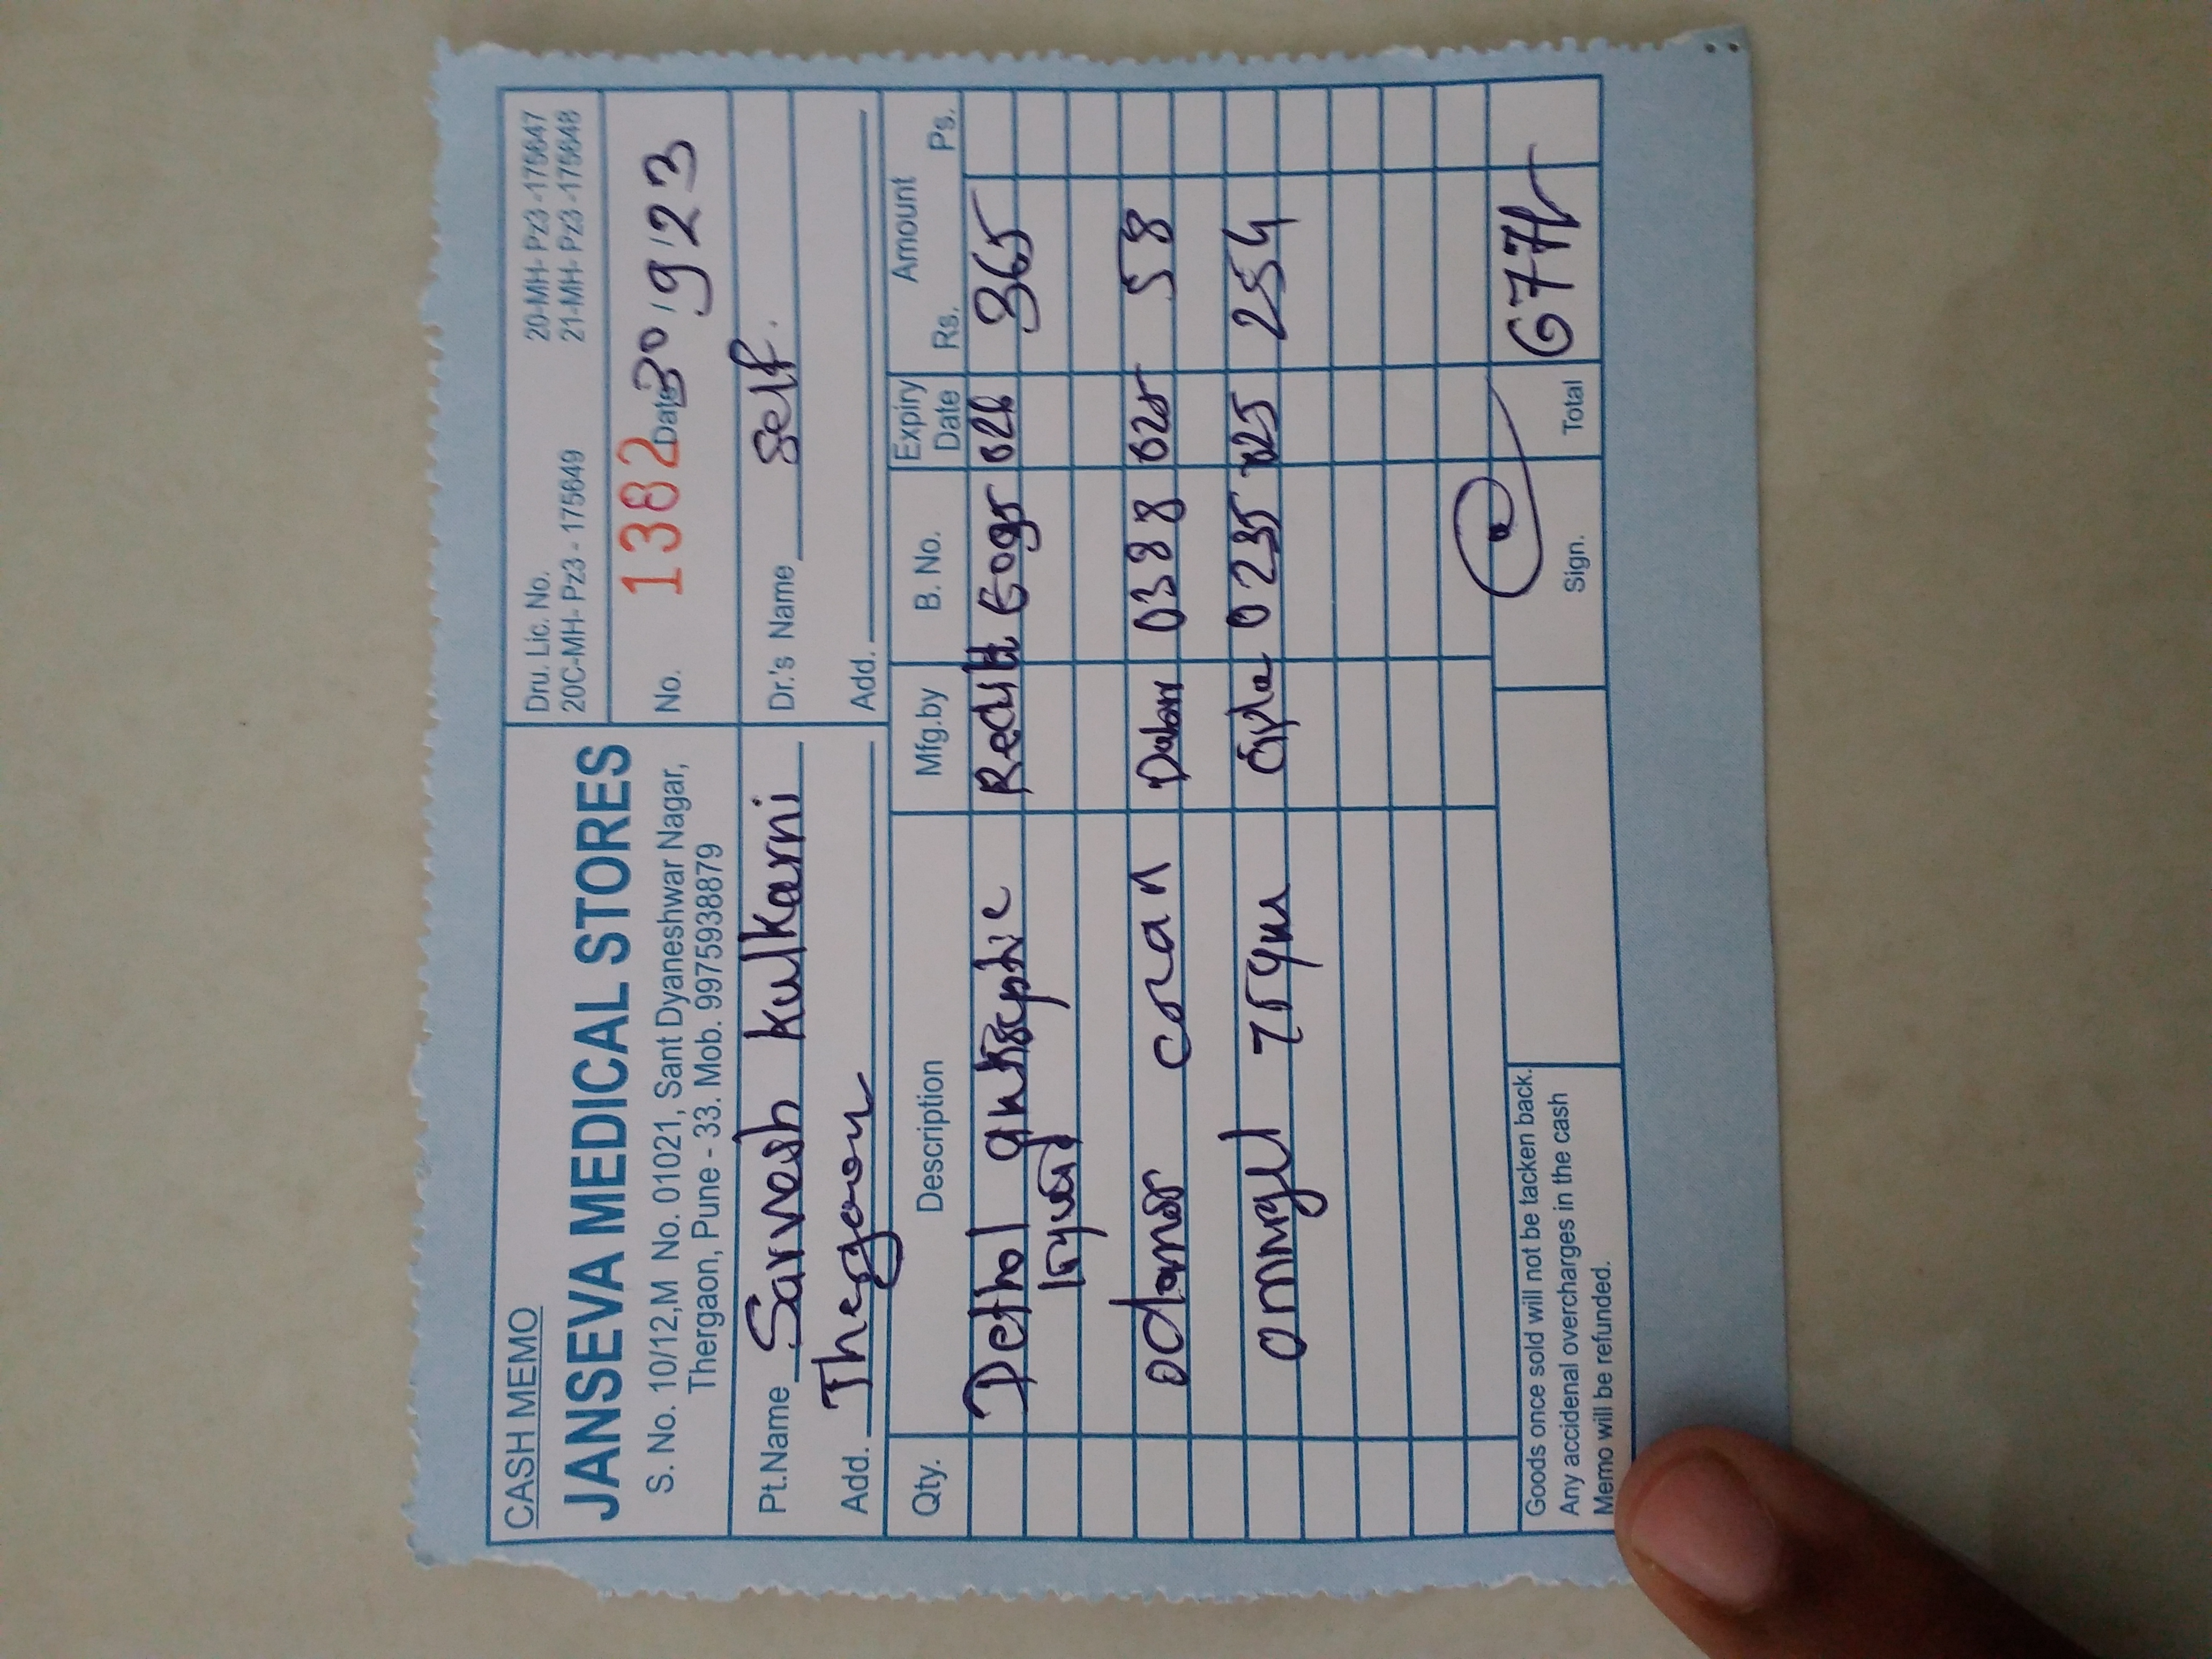 CASH MEMO
JANSEVA MEDICAL STORES
S. No. 10/12,M No. 01021, Sant Dyaneshwar Nagar,
Thergaon, Pune - 33. Mob. 9975938879
Dru. Lic. No. 20-MH- Pz3 -175647
20C-MH- Pz3 - 175649 21-MH- Pz3 -175648
No. 1382 Date 30/9/23
Pt.Name Sarvesh Kulkarni
Add. Thergaon
Dr.'s Name self.
Add.
Qty. Description Mfg.by B. No. Expiry Date Amount Rs. Ps.
Dethol antiseptic 026 365
liquid
odomos Dabur 0388 025 58
omnigel 75gm Cipla 0235 025 254
Goods once sold will not be tacken back.
Any accidenal overcharges in the cash
Memo will be refunded.
Sign.
Total 677/-